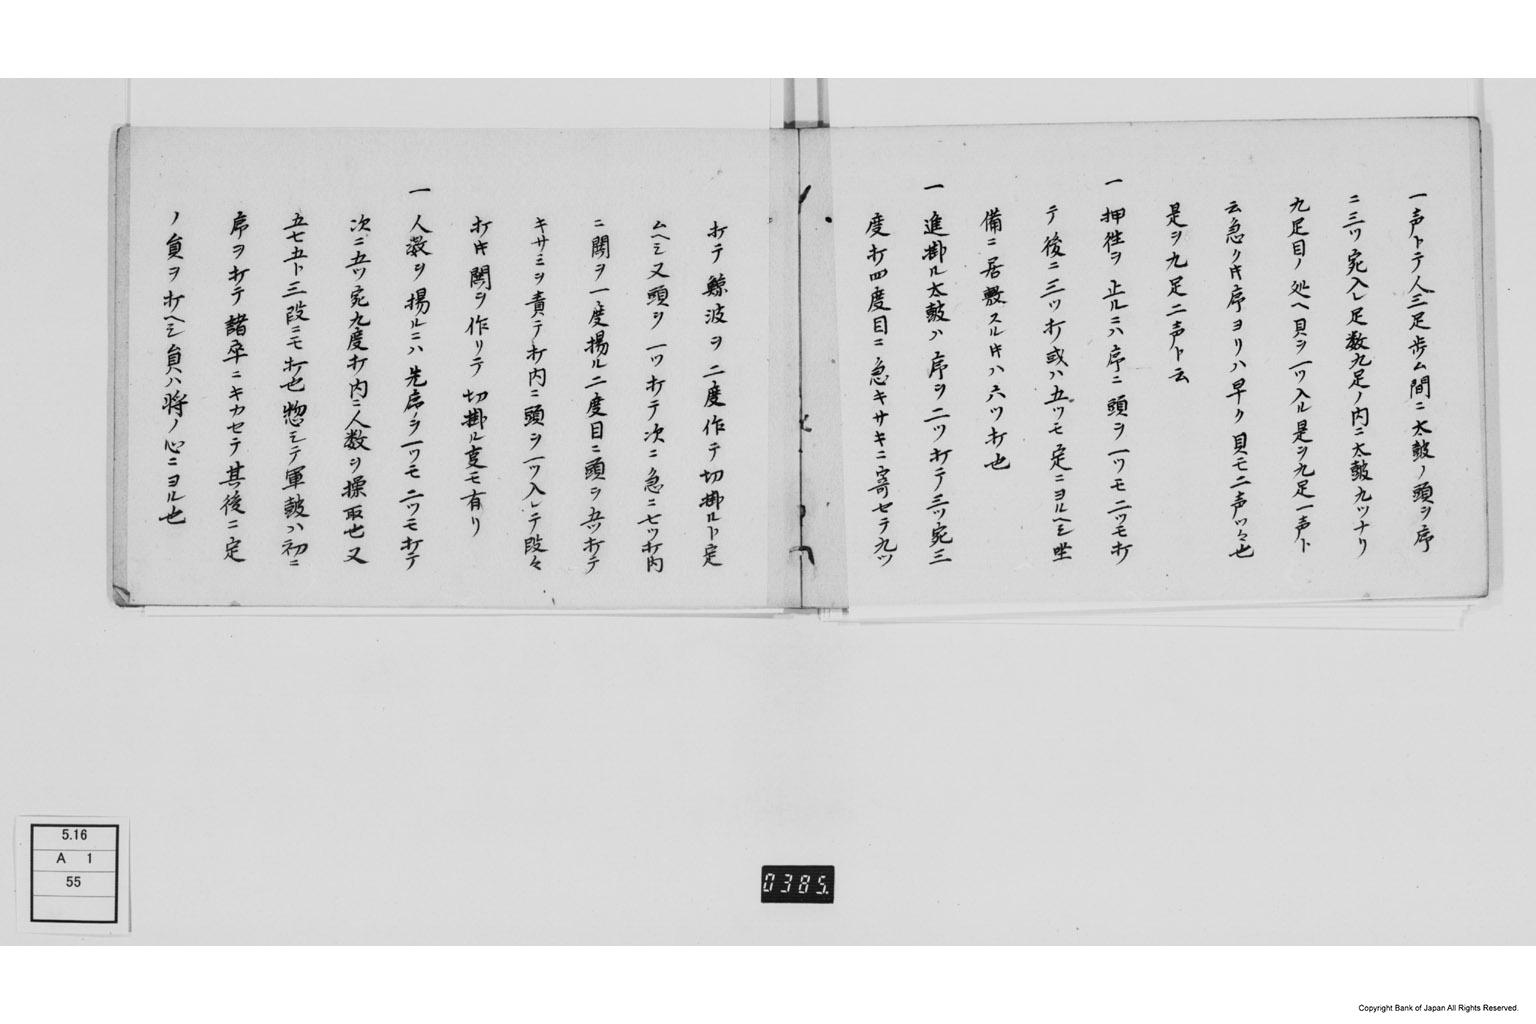 一声トテ人三足歩ム間ニ太鼓ノ頭ヲ序
ニ三ツ宛入レ足数九足ノ内ニ太鼓九ツナリ
九足目ノ処ヘ貝ヲ一ツ入ル是ヲ九足一声ト
云急クトキ序ヨリハ早ク貝モ二声ツヽ也
是ヲ九足二声ト云
一押往ヲ止ルニハ序ニ頭ヲ一ツモ二ツモ打
テ後ニ三ツ打或ハ五ツモ定ニヨルヘシ坐
備ニ居敷スル𪜈ハ六ツ打也
一進掛ル太鼓ハ序ヲ二ツ打テ三ツ宛三
度打四度目ニ急キサキニ寄セテ九ツ
打テ鯨波ヲ二度作テ切掛ルト定
ムヘシ又頭ヲ一ツ打テ次ニ急ニ七ツ打内
ニ鬨ヲ一度揚ル二度目ニ頭ヲ五ツ打テ
キサミヲ責テ打内ニ頭ヲ一ツ入レテ段々
打𪜈鬨ヲ作リテ切掛ル事モ有リ
一人数ヲ揚ルニハ先序ヲ一ツモ二ツモ打テ
次ニ五ツ宛九度打内ニ人数ヲ操取也又
五七五ト三段ニモ打也惣シテ軍鼓ハ初ニ
序ヲ打テ諸卒ニキカセテ其後ニ定
ノ員ヲ打ヘシ員ハ将ノ心ニヨル也
5.16
A 1
55
0385.
Copyright Bank of Japan All Rights Reserved.